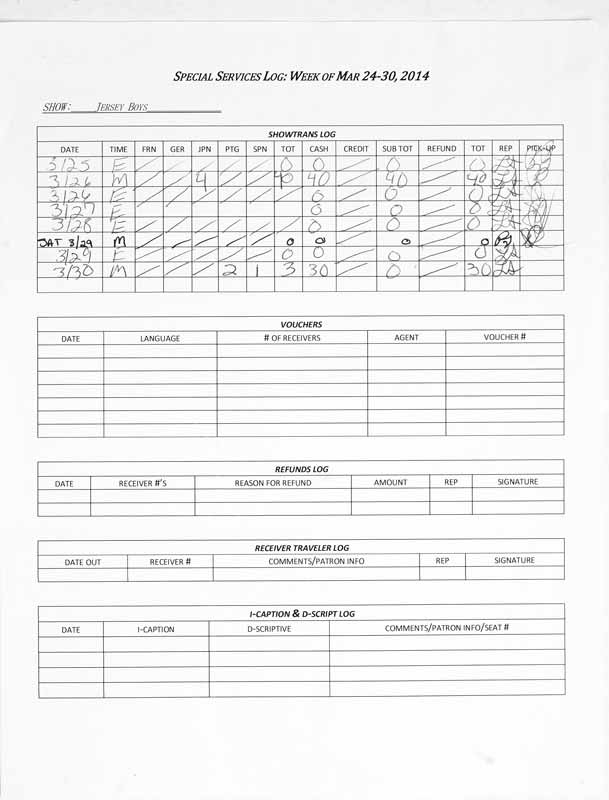 SPECIAL SERVICES LOG: WEEK OF MAR 24-30, 2014
SHOW: JERSEY BOYS
SHOWTRANS LOG
DATE TIME FRN GER JPN PTG SPN TOT CASH CREDIT SUB TOT REFUND TOT REP PICK-UP
3/25 E / / / / / 0 0 / 0 / 0 LA
3/26 M / / 4 / / 40 / 40 / 40 LA
3/26 E / / / / / 0 / 0 / 0 LA
3/27 E / / / / / 0 / 0 / 0 LA
3/28 E / / / / / 0 / 0 / 0 LA
SAT 3/29 M / / / / / 0 0 0 / 0
3/29 E / / / / / 0 0 / 0 / 0 LA
3/30 M / / / 2 1 3 30 / 0 / 30 LA
VOUCHERS
DATE LANGUAGE # OF RECEIVERS AGENT VOUCHER #
REFUNDS LOG
DATE RECEIVER #'S REASON FOR REFUND AMOUNT REP SIGNATURE
RECEIVER TRAVELER LOG
DATE OUT RECEIVER # COMMENTS/PATRON INFO REP SIGNATURE
I-CAPTION & D-SCRIPT LOG
DATE I-CAPTION D-SCRIPTIVE COMMENTS/PATRON INFO/SEAT #